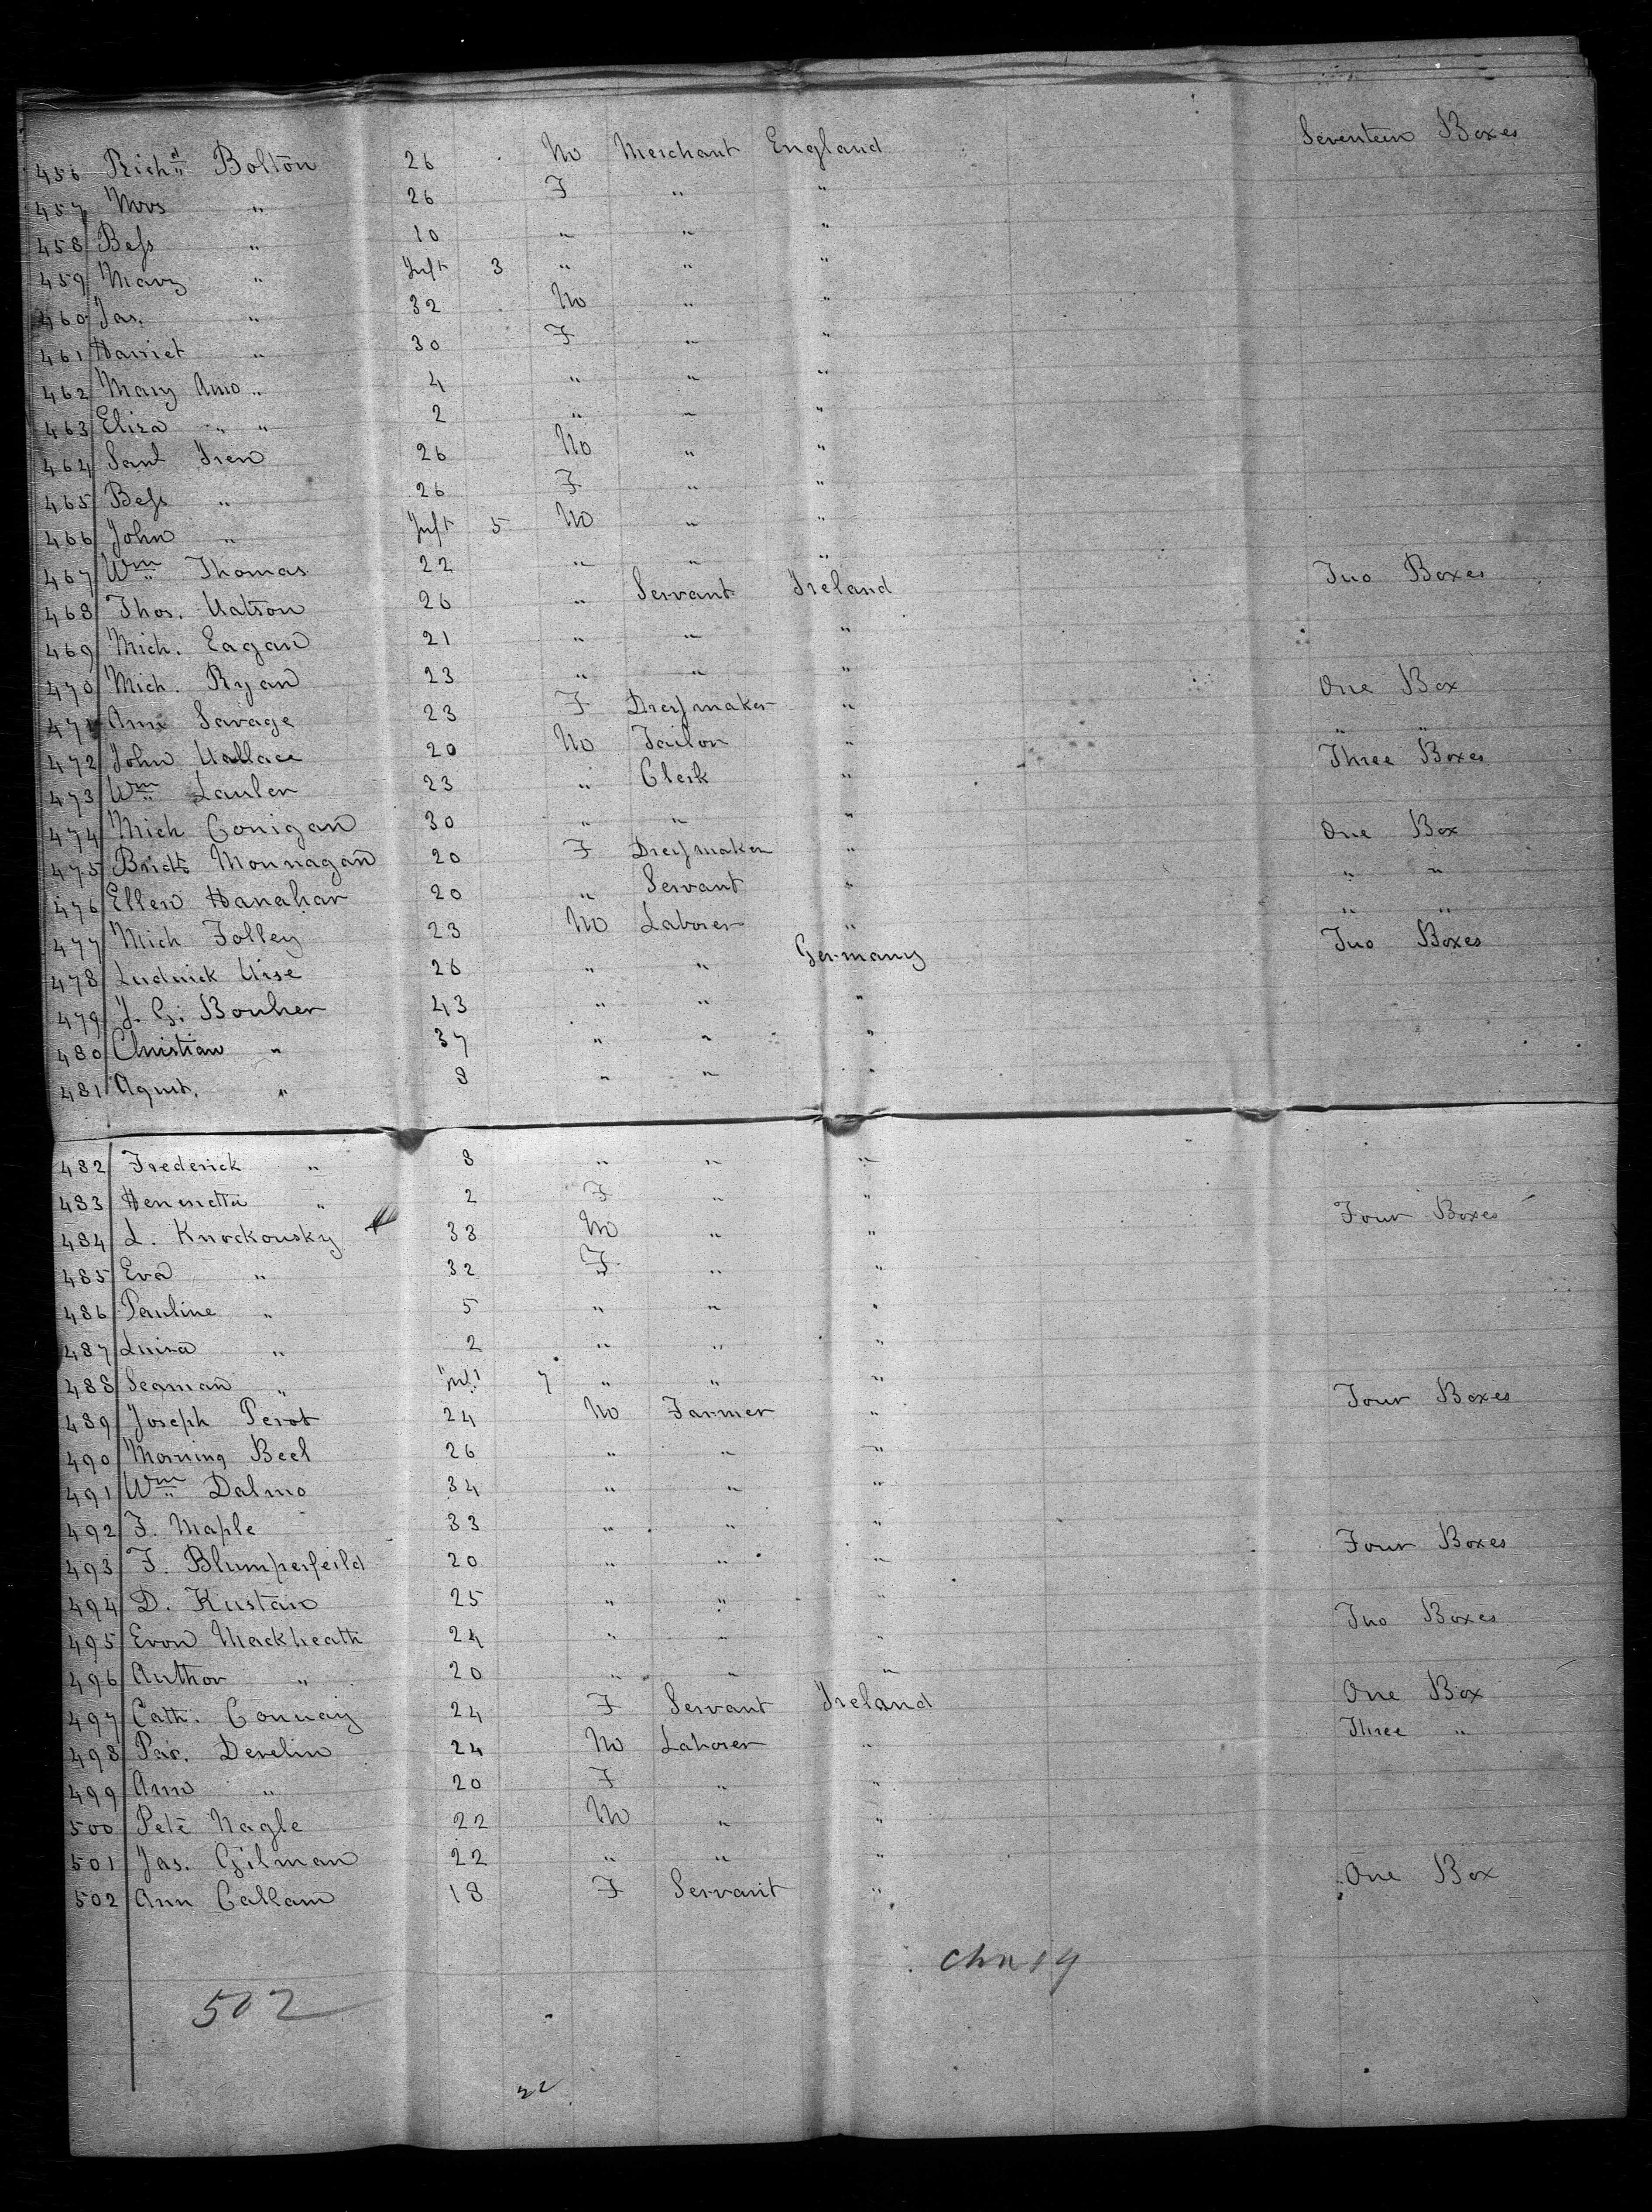 456 Richd Bolton 26 M Merchant England Seventeen Boxes
457 Mrs " 26 F " "
458 Bess " 10 " " "
459 Mary " Inft 3 " " "
460 Jas. " 32 M " "
461 Harriet " 30 F " "
462 Mary Ann " 4 " " "
463 Eliza " " 2 " " "
464 Saml Iren 26 M " "
465 Bess " 26 F " "
466 John " Inft 5 M " "
467 Wm Thomas 22 " " "
468 Thos. Watson 26 " Servant Ireland Two Boxes
469 Mich. Eagan 21 " " "
470 Mich. Ryan 23 " " "
471 Ann Savage 23 F Dressmaker " One Box
472 John Wallace 20 M Tailor " " "
473 Wm Lauler 23 " Clerk " Three Boxes
474 Mich Conigan 30 " " "
475 Bridt Monnagan 20 F Dressmaker " One Box
476 Ellen Hanahar 20 " Servant " " "
477 Mich Folley 23 M Laborer " " "
478 Ludwick Wise 26 " " Germany Two Boxes
479 J. G. Bouher 43 " " "
480 Christian " 37 " " "
481 Agust. " 8 " " "
482 Frederick " 8 " " "
483 " 2 F " "
484 L. Knockowsky 33 M " " Four Boxes
485 Eva " 32 F " "
486 Pauline " 5 " " "
487 Luiza " 2 " " "
488 Seaman " Inft 7 " " "
489 Joseph Perot 24 M Farmer " Four Boxes
490 Morning Beel 26 " " "
491 Wm Dalmo 34 " " "
492 F. Maple 33 " " "
493 F. Blumperfeild 20 " " " Four Boxes
494 D. Kustan 25 " " "
495 Evon Mackheath 24 " " " Two Boxes
496 Author " 20 " " "
497 Cath. Conway 24 F Servant Ireland One Box
498 Pat. Develin 24 M Laborer " Three "
499 Ann " 20 F " "
500 Pete Nagle 22 M " "
501 Jas. Gilman 22 " " "
502 Ann Callam 18 F Servant " One Box
502
22